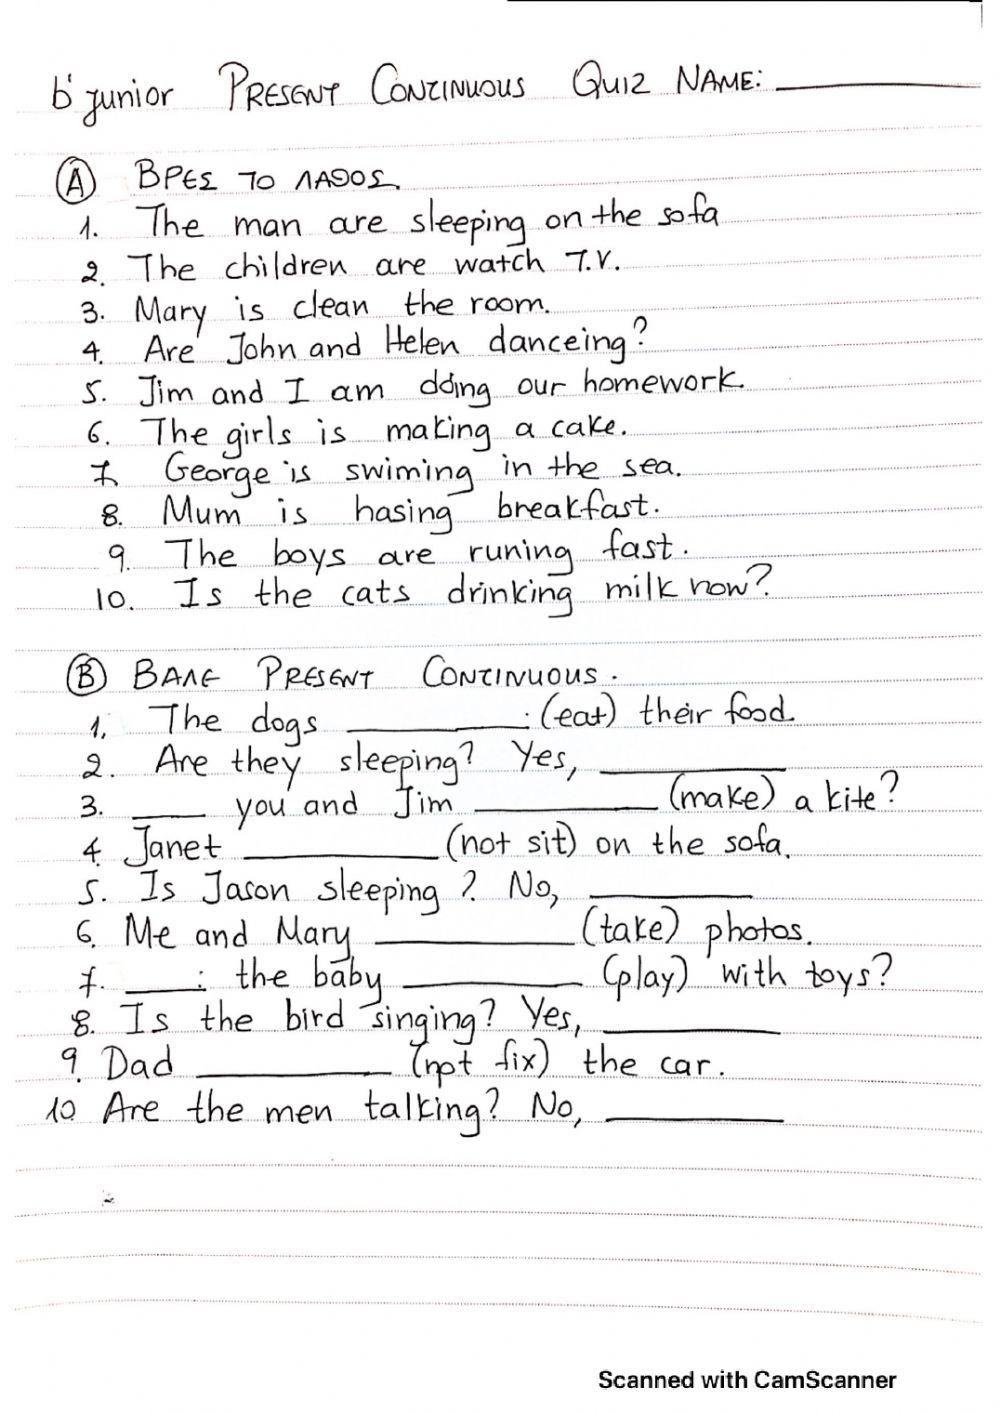 b' junior PRESENT CONTINUOUS QUIZ NAME:
Ⓐ ΒΡΕΣ ΤΟ ΛΑΘΟΣ.
1. The man are sleeping on the sofa
2. The children are watch T.V.
3. Mary is clean the room.
4. Are John and Helen danceing?
5. Jim and I am doing our homework.
6. The girls is making a cake.
7. George is swiming in the sea.
8. Mum is hasing breakfast.
9. The boys are runing fast.
10. Is the cats drinking milk now?
Ⓑ ΒΑΛΕ PRESENT CONTINUOUS.
1. The dogs ________: (eat) their food.
2. Are they sleeping? Yes, ________
3. ____ you and Jim ________ (make) a kite?
4. Janet ________ (not sit) on the sofa.
5. Is Jason sleeping? No, ________
6. Me and Mary ________ (take) photos.
7. ____: the baby ________ (play) with toys?
8. Is the bird singing? Yes, ________
9. Dad ________ (not fix) the car.
10 Are the men talking? No, ________
Scanned with CamScanner